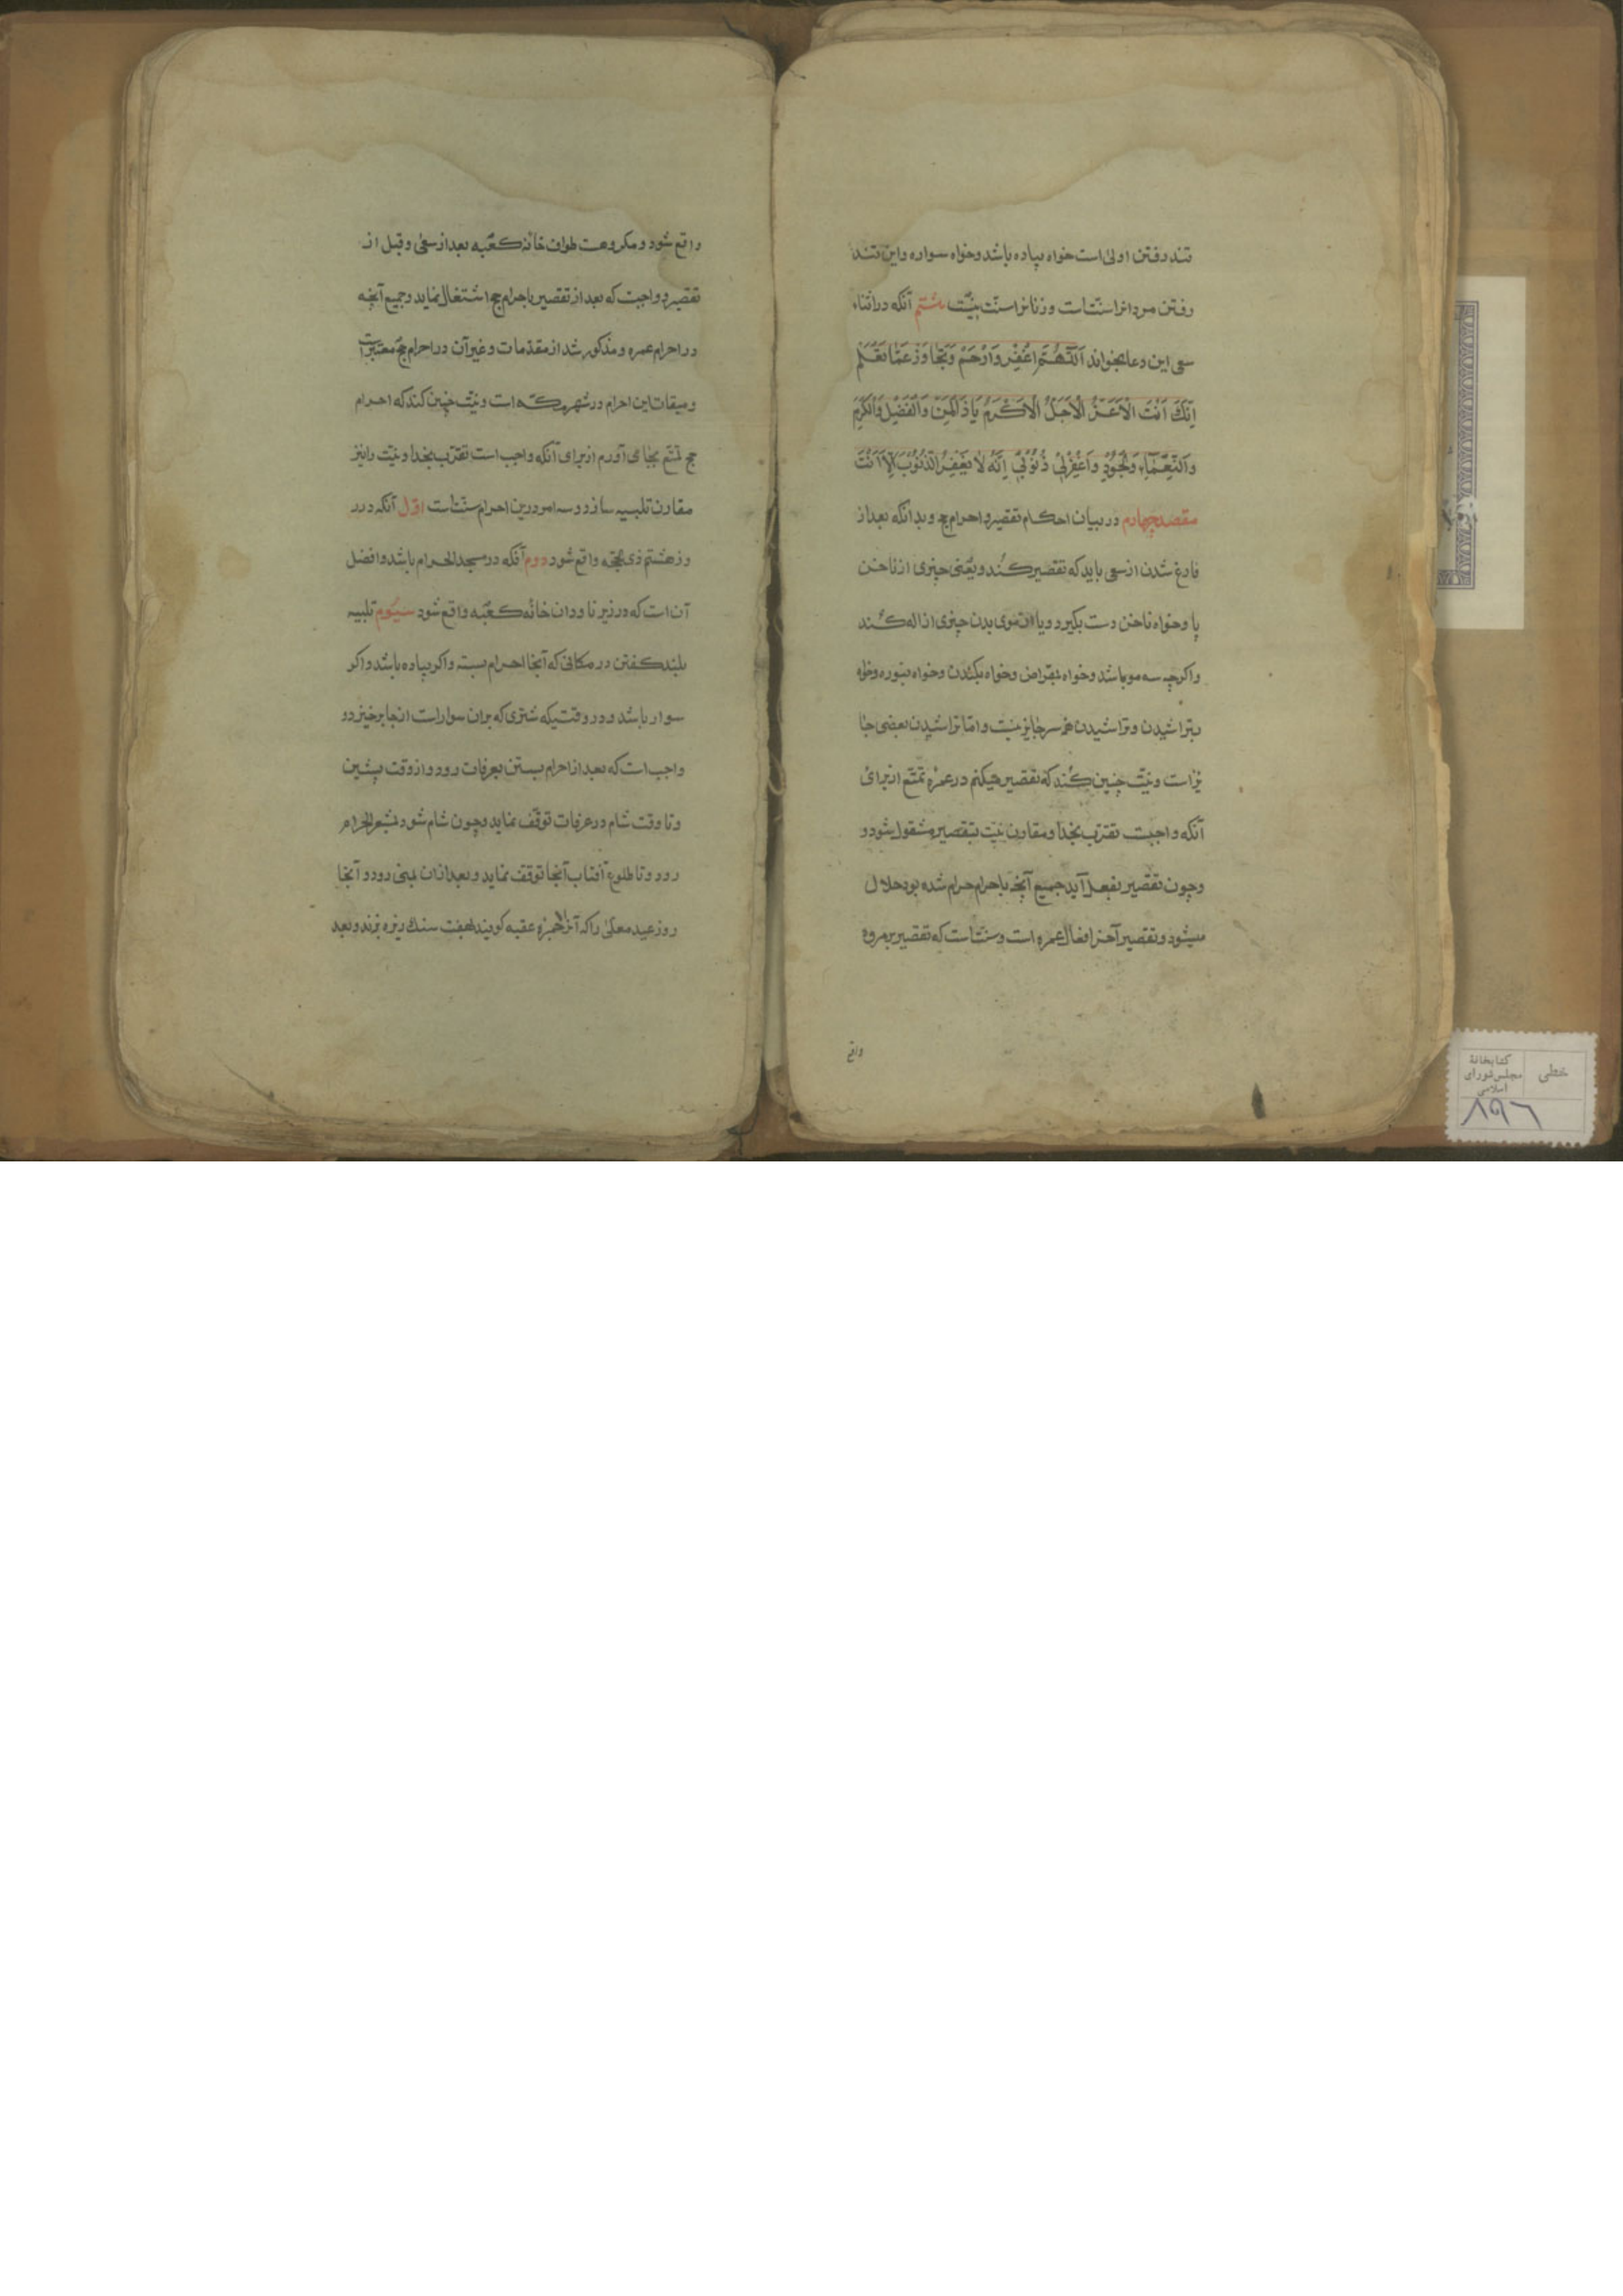 تند رفتن اولی است خواه پیاده باشد و خواه سواره و این تند
رفتن مردانرا سنّت است و زنانرا سنّت نیّت هشتم آنکه در اثناء
سعی این دعا بخواند اَللّهُمَّ اغْفِرْ وَارْحَمْ وَتَجاوَزْ عَمّا تَعْلَمْ
اِنَّكَ اَنْتَ الْاَعَزُّ الْاَجَلُّ الْاَكْرَمُ يَا ذَا الْمَنِّ وَالْفَضْلِ وَالْكَرَمِ
وَالنَّعْمَاءِ وَالْجُودِ وَاغْفِرْلِي ذُنُوْبِي اِنَّهُ لَا يَغْفِرُ الذُّنُوْبَ اِلَّا اَنْتَ
مقصد چهارم در بیان احکام تقصیر و احرام حج و بدانکه بعد از
فارغ شدن از سعی باید که تقصیر کند و یعنی چیزی از ناخن
پا و خواه ناخن دست بگیرد و یا از موی بدن چیزی ازاله کند
و اگرچه سه مو باشد و خواه بمقراض و خواه بکندن و خواه بنوره و خواه
بتراشیدن و تراشیدن همه سر جایز نیست و اما تراشیدن بعضی جا
یز است و نیّت چنین کند که تقصیر میکنم در عمرهٔ تمتّع از برای
آنکه واجبست تقرّب بخدا و مقارن نیّت بتقصیر مشغول شود و
و چون تقصیر بفعل آید جمیع آنچه باحرام حرام شده بود حلال
میشود و تقصیر آخر افعال عمره است و سنّت است که تقصیر بر مروه
واقع
واقع شود و مکروهست طواف خانه کعبه بعد از سعی و قبل از
تقصیر و واجبست که بعد از تقصیر باحرام حج اشتغال نماید و جمیع آنچه
در احرام عمره و مذکور شد از مقدّمات و غیر آن در احرام حجّ معتبر است
و میقات این احرام در شهر مکّه است و نیّت چنین کند که احرام
حج تمتّع بجا می آورم از برای آنکه واجب است تقرّب بخدا و نیّت را نیز
مقارن تلبیه سازد و سه امر درین احرام سنّت است اوّل آنکه در ر
وز هشتم ذی حجّه واقع شود دوم آنکه در مسجد الحرام باشد و افضل
آن است که در زیر ناودان خانه کعبه واقع شود سیّوم تلبیه
بلند گفتن در مکانی که آنجا احرام بسته و اگر پیاده باشد و اگر
سوار باشد و در وقتیکه شتری که بران سوار است از جا برخیزد و
واجب است که بعد از احرام بستن بعرفات رود و از وقت پیشین
و تا وقت شام در عرفات توقّف نماید و چون شام شود بمشعر الحرام
رود و تا طلوع آفتاب آنجا توقف نماید و بعد ازان بمنی رود و آنجا
روز عید را که آنرا جمره عقبه گویند بهفت سنك ریزه بزند و بعد
کتابخانهٔ
مجلس شورای
اسلامی
خطی
۸۹۶